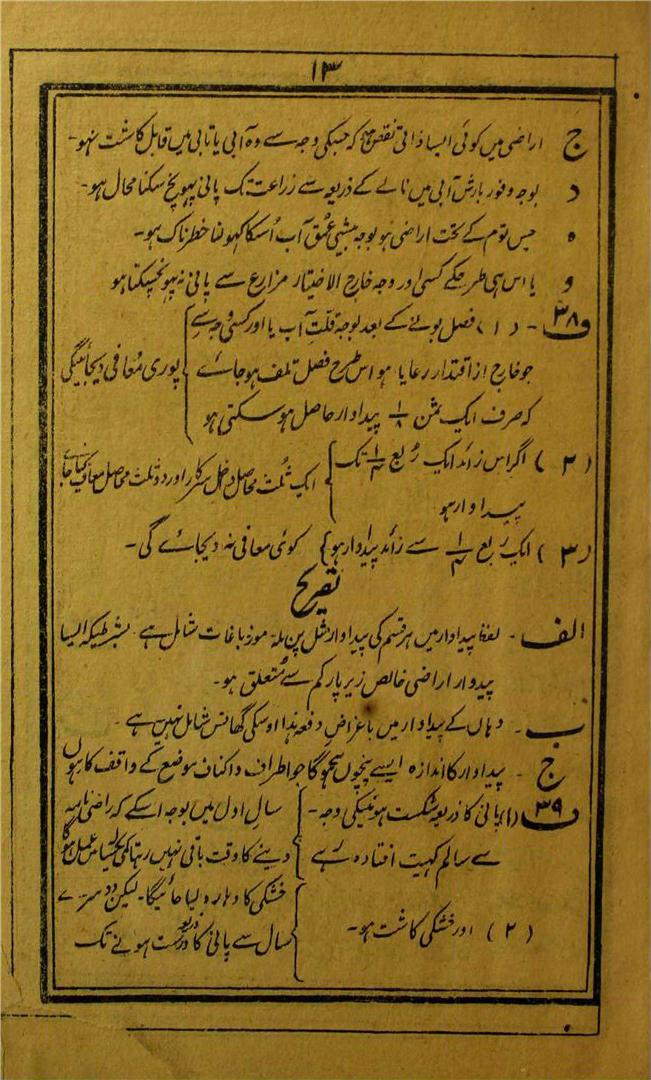 ۱۳
ج اراضی میں کوئی ایسا ذاتی نقص ہو کہ جسکی وجہ سے وہ آبی یا تابی میں قابل کاشت نہو۔
د بوجہ وفور بارش آبی میں نالے کے ذریعہ سے زراعت تک پانی پہونچ سکنا محال ہو۔
ہ جس توم کے تحت اراضی ہو بوجہ بیشی عمق آب اُسکا کہولنا خطرناک ہو۔
و یا اس ہی طرحکے کسی اور وجہ خارج الاختیار مزارع سے پانی نہ پہونچسکتا ہو
ف ۳۸۔ (۱) فصل بونے کے بعد بوجہ قلّتِ آب یا اور کسی وجہ سے
جو خارج از اقتدار رعایا ہو اس طرح فصل تلف ہو جاے پوری مُعافی دیجائیگی
کہ صرف ایک ثمن ۱/۸ پیداوار حاصل ہو سکتی ہو
(۲) اگر اس زائد ایک رُبع ۱/۴ تک ایک ثُلث محاصل داخل سرکار اور دو ثلث محاصل معاف کیا جائے
پیداوار ہو
(۳) ایک رُبع ۱/۴ سے زائد پیداوار ہو کوئی معافی نہ دیجائے گی۔
تصریح
الف۔ لفظ پیداوار میں ہر قسم کی پیداوار مثل پن ملہ موز باغات شامل ہے بشرطیکہ ایسا
پیدوار اراضی خالص زیر پارکم سے متعلق ہو۔
ب۔ دہاں کے پیداوار میں باغراضِ دفعہ ہٰذا اوسکی گھانس شامل نہیں ہے۔
ج۔ پیداوار کا اندازہ ایسے پنچوں سے ہوگا جو اطراف و اکناف موضع کے واقف کار ہوں
ف ۳۹ (۱) پانی کا ذریعہ شکست ہونیکی وجہ۔ سالِ اول میں بوجہ اسکے کہ راضی نامہ
سے سالم کہیت افتادہ رہے دینے کا وقت باقی نہیں رہتا عمل ہوگا
(۲) اور خشکی کاشت ہو۔ خشکی کا دہارہ لیا جائیگا۔ لیکن دوسرے
سال سے پانی کا ذریعہ درست ہونے تک